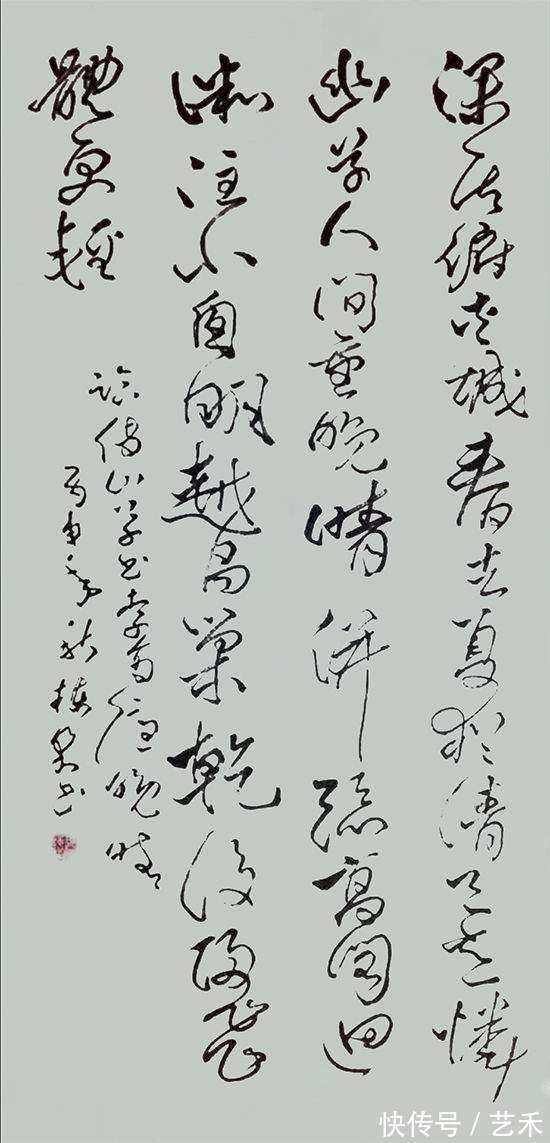 深居俯夾城春去夏猶清天意憐
幽草人間重晚晴併添高閣迥
微注小窗明越鳥巢乾後歸飛
體更輕
臨傅山草書李商隱晚晴
丙申年秋書
快传号/艺禾